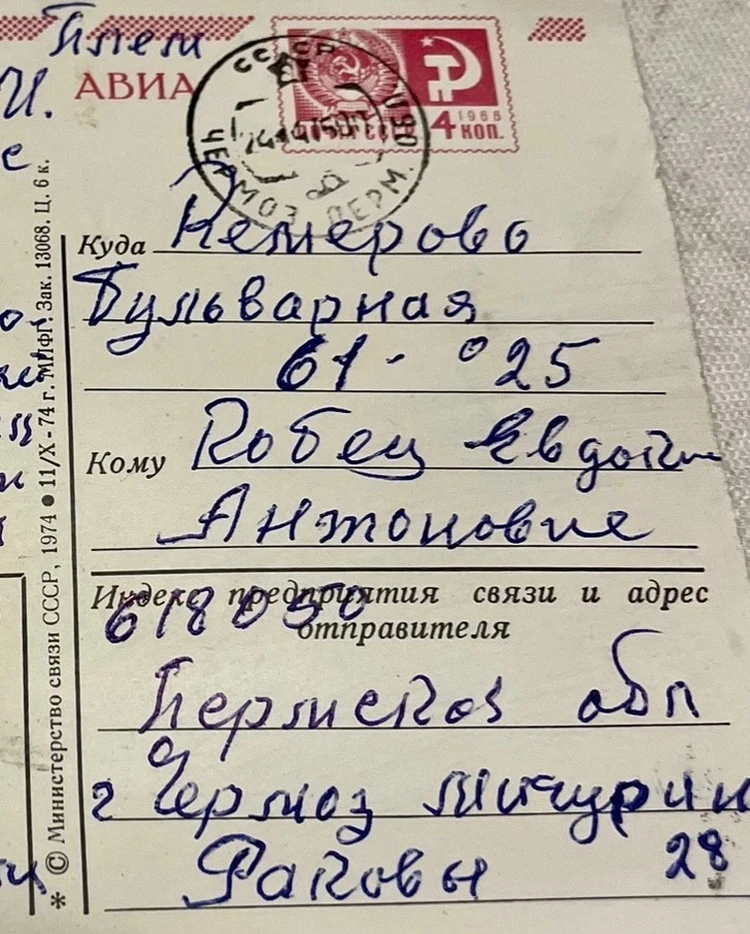 АВИА
СССР
ЧЕРМОЗ ПЕРМ.
1966
4 КОП.
Куда Кемерово
Бульварная
61 - 25
Кому Кобец Евдокии
Антоновне
Индекс предприятия связи и адрес
отправителя
618050
Пермская обл
г Чермоз Мичурин
28
Раковы
* © Министерство связи СССР, 1974 ● 11/X-74 г. МПФГ. Зак. 13068. Ц. 6 к.